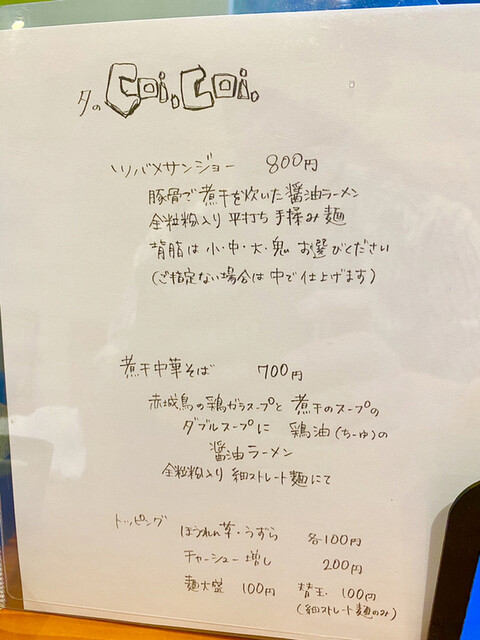 夕の Coi.Coi.
ツバメサンジョー 800円
豚骨で煮干を炊いた醤油ラーメン
全粒粉入り 平打ち 手揉み麺
背脂は 小・中・大・鬼 お選びください
(ご指定ない場合は 中で 仕上げます)
煮干中華そば 700円
赤城鳥の鶏ガラスープと 煮干のスープの
ダブルスープに 鶏油(ちーゆ)の
醤油ラーメン
全粒粉入り 細ストレート麺にて
トッピング ほうれん草・うずら 各100円
チャーシュー増し 200円
麺大盛 100円 替玉 100円
(細ストレート麺のみ)